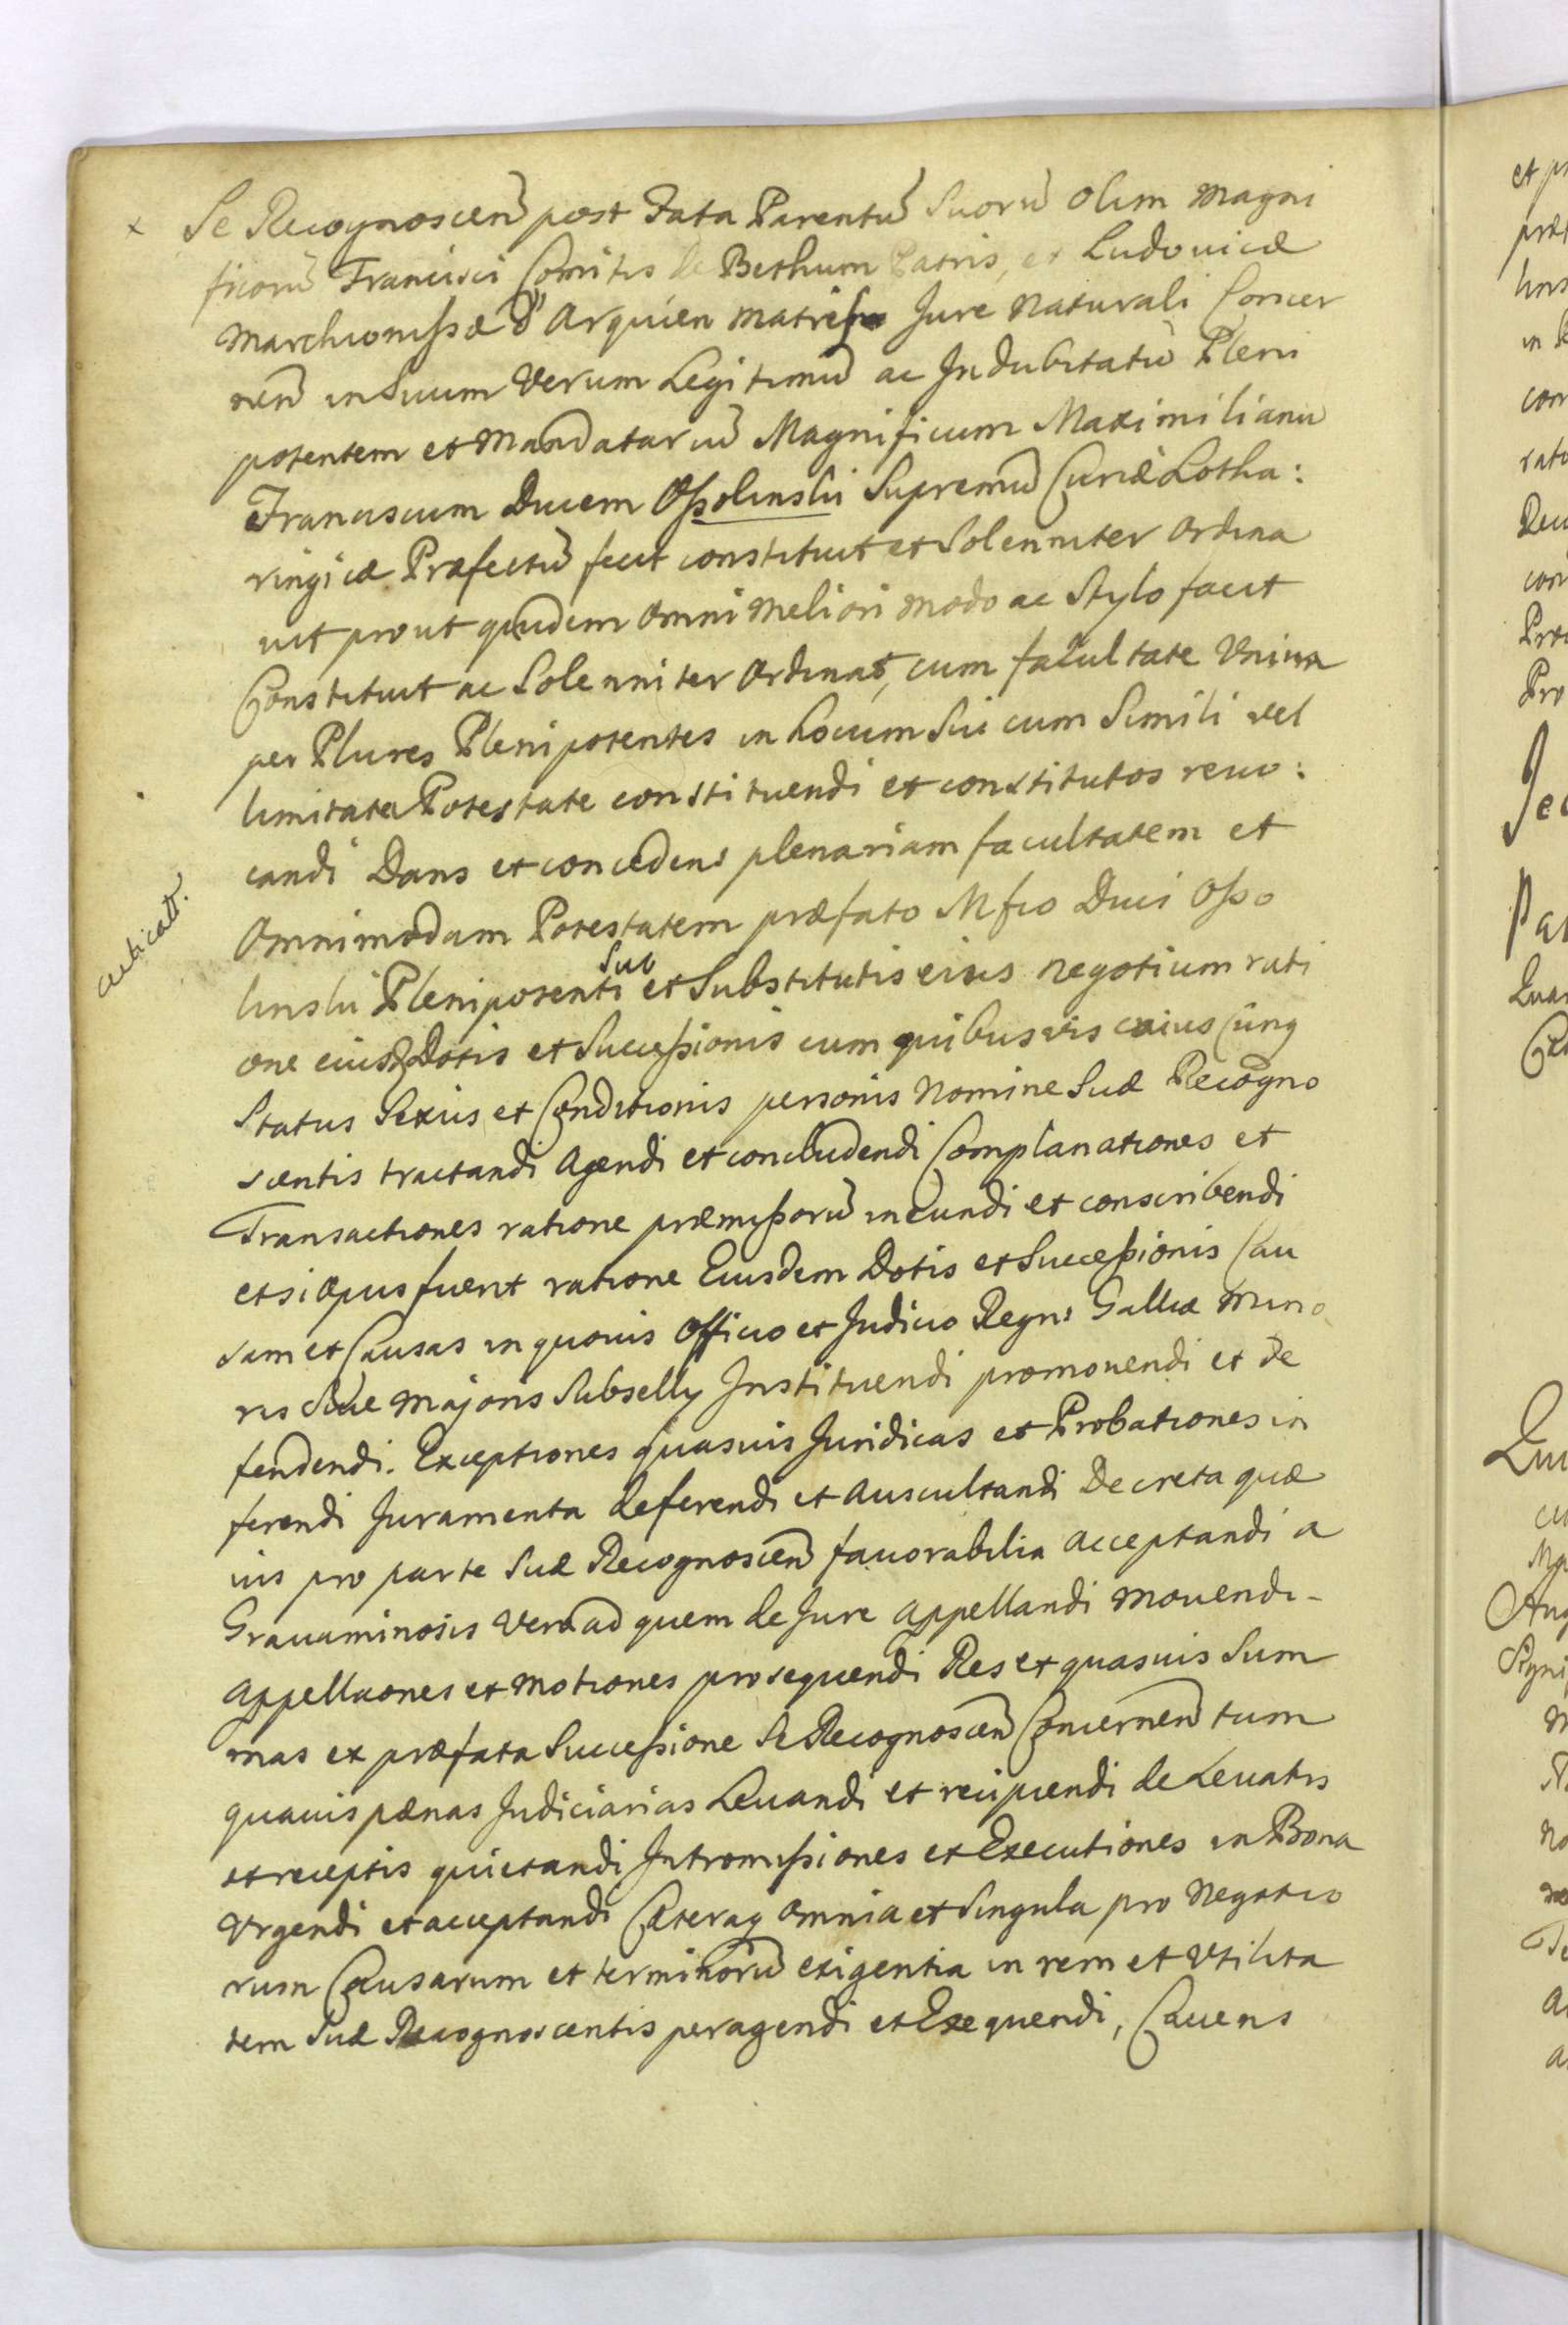 x Se Recognoscen̄ post Fata Parentū Suorū Olim Magni
ficorū Francisci Comitis de Bethum Patris, et Ludovicæ
Marchionissæ d'Arquien Matris Jure Naturali Concer
nen̄ in Suum Verum Legitimū ac Indubitatū Pleni
potentem et Mandatariū Magnificum Maximilianū
Franciscum Ducem Ossolinskii Supremū Curiæ Lotha:
ringicæ Præfectū fecit constituit et Solenniter Ordina
vit prout quidem Omni Meliori Modo ac Stylo facit
Constituit ac Solenniter Ordinat, cum facultate Unum
per Plures Plenipotentes in Locum Sui cum Simili vel
limitata Potestate constituendi et constitutos revo:
candi Dans et concedens plenariam facultatem et
Omnimodam Potestatem præfato Mfco Duci Osso
linskii Plenipotenti Suo et Substitutis eius negotium rati
one eiusd Dotis et Successionis cum quibusvis cuius cunq
Status Sexus et Conditionis personis Nomine Suæ Recogno
scentis tractandi Agendi et concludendi Complanationes et
Transactiones ratione præmissorū ineundi et conscribendi
et si opus fuerit ratione Eiusdem Dotis et Successionis Cau
sam et Causas in quovis Officio et Judicio Regni Galliæ Mino
ris sive Majoris Subselly Instituendi promovendi et de
fendendi. Exceptiones quasvis Juridicas et Probationes in
ferendi Juramenta deferendi et Auscultandi Decreta quæ
vis pro parte Suæ Recognoscen̄ favorabilia Acceptandi a
Gravaminosis Vero ad quem de Jure Appellandi Movendi-
Appellaones et Motiones prosequendi Res et quasvis Sum
mas ex præfata Successione Se Recognoscen̄ Concernen̄ tum
quavis pænas Judiciarias Levandi et recipiendi de Levatis
et receptis quietandi Intromissiones et Executiones in Bona
Urgendi et acceptandi Cæteraq Omnia et Singula pro Negotio
rum Causarum et terminorū exigentia in rem et Utilita
tem Suæ Recognoscentis peragendi et Exequendi, Cavens